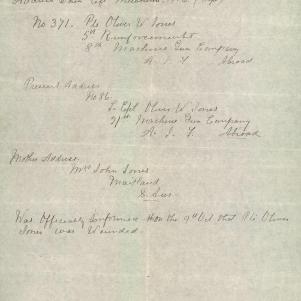 No 371. Pte Oliver W Jones
5th Reinforcements
8th Machine Gun Company
A. I. F. Abroad
Present Address
No 86.
L. Cpl Oliver W Jones
21st Machine Gun Company
A. I. F. Abroad
Mothers Address
Mrs John Jones
Maitland
S. Aus
Was Officially Informed on the 9th Oct that Pte Oliver
Jones was Wounded